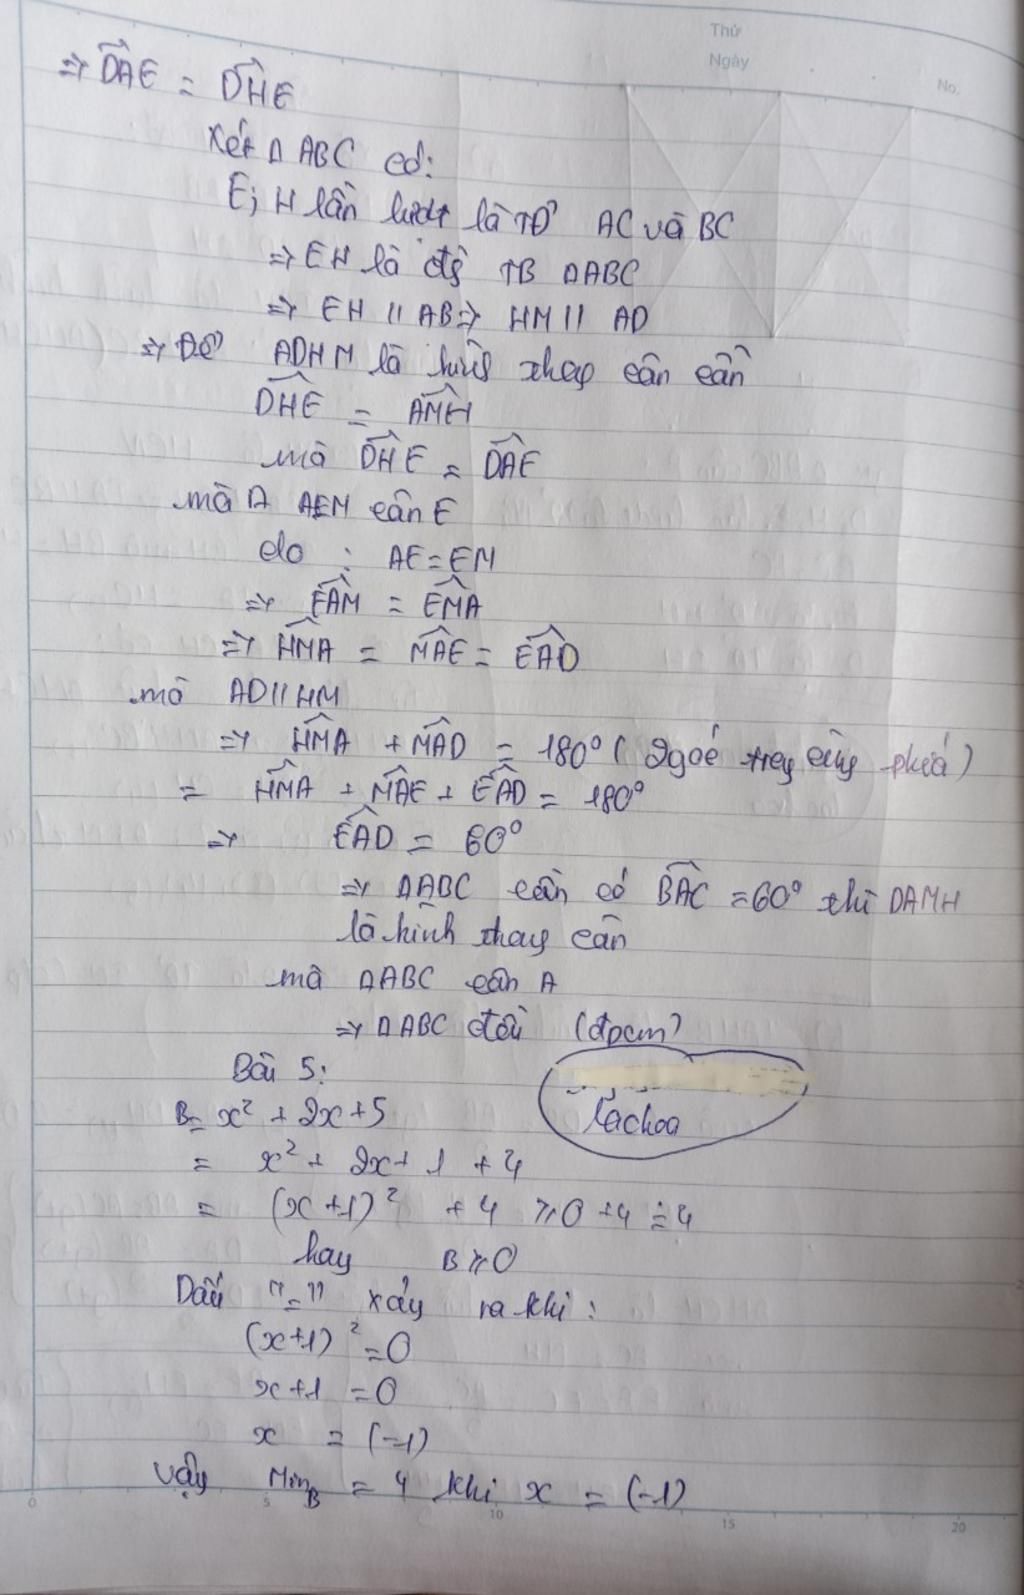 Thứ
Ngày
No.
=> DÂE = DĤE
Xét Δ ABC có:
E; H lần lượt là TĐ AC và BC
=> EH là đg TB ΔABC
=> EH // AB => HM // AD
=> Để ADHM là hình thag cân cần
DĤE = AM̂H
mà DĤE = DÂE
mà Δ AEM cân E
do : AE = EM
=> EÂM = EM̂A
=> HM̂A = MÂE = EÂD
mà AD // HM
=> HM̂A + MÂD = 180° ( 2 góc trog cùng phía )
= HM̂A + MÂE + EÂD = 180°
=> EÂD = 60°
=> ΔABC cần có BÂC = 60° thì DAMH
là hình thag cân
mà ΔABC cân A
=> ΔABC đều (đpcm)
Bài 5:
B = x² + 2x + 5
= x² + 2x + 1 + 4
= (x + 1)² + 4 ≥ 0 + 4 = 4
hay B ≥ 0
Dấu "=" xảy ra khi :
(x+1)² = 0
x + 1 = 0
x = (-1)
vậy Min_B = 4 khi x = (-1)
0 5 10 15 20